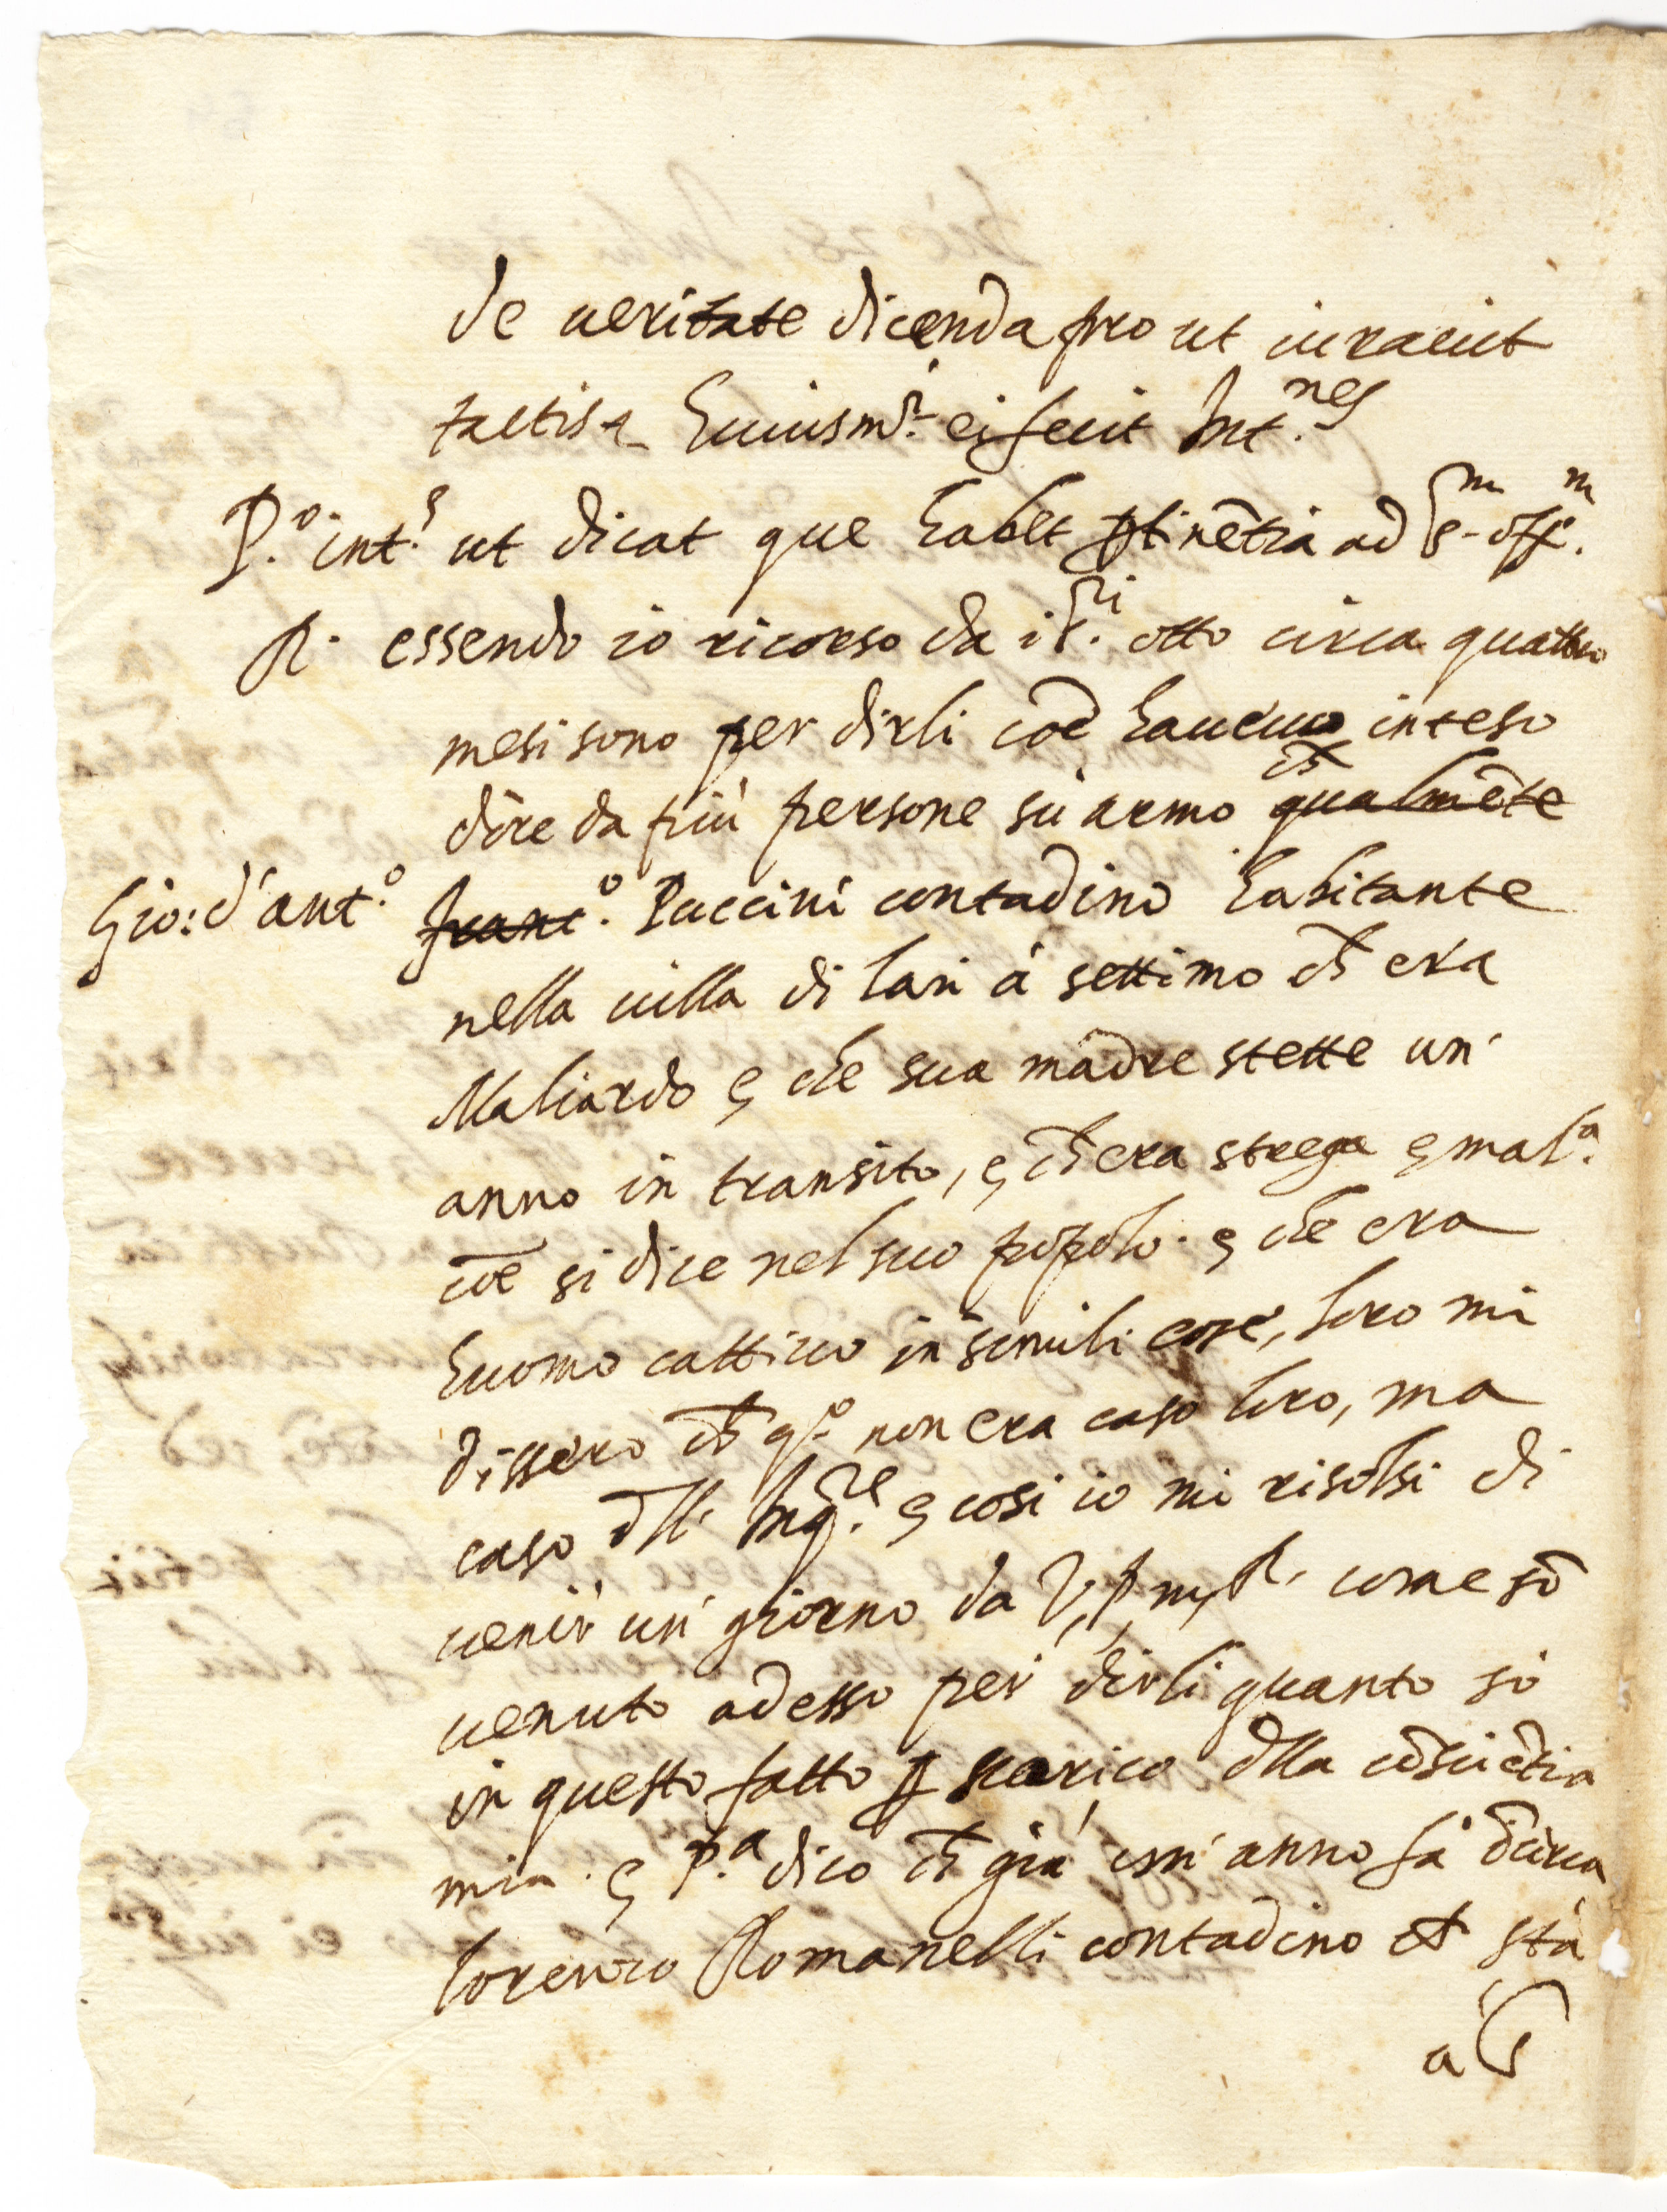 de ueritate dicenda pro ut iurauit
tactis & huiusm.ͬ ei fecit Int.nes
P.º int.s ut dicat que habet ptinētia ad S.m off.m
R. essendo io ricorso da i S.ri otto circa quattro
mesi sono per dirli coē haueuo inteso
dire da più persone sù armo qualmēte ch̄
Gio: d'ant.º franc.º Puccini contadino habitante
nella uilla di lari à settimo ch̄ era
Maliardo e che sua madre stette un'
anno in transito, e ch̄ era strega e mal.a
coē si dice nel suo popolo. e che era
huomo cattiuo in simili cose, loro mi
dissero ch̄ q.º non era caso loro, ma
caso dll' Inq.re e così io mi risolsi di
uenir un' giorno da V. P. m. R. come sō
uenuto adesso per dirli quanto sò
in questo fatto p scarico dlla cōsciētia
mia. e p.a dico ch̄ già un' anno fà d circa
lorenzo Romanelli contadino ch̄ stà
a S